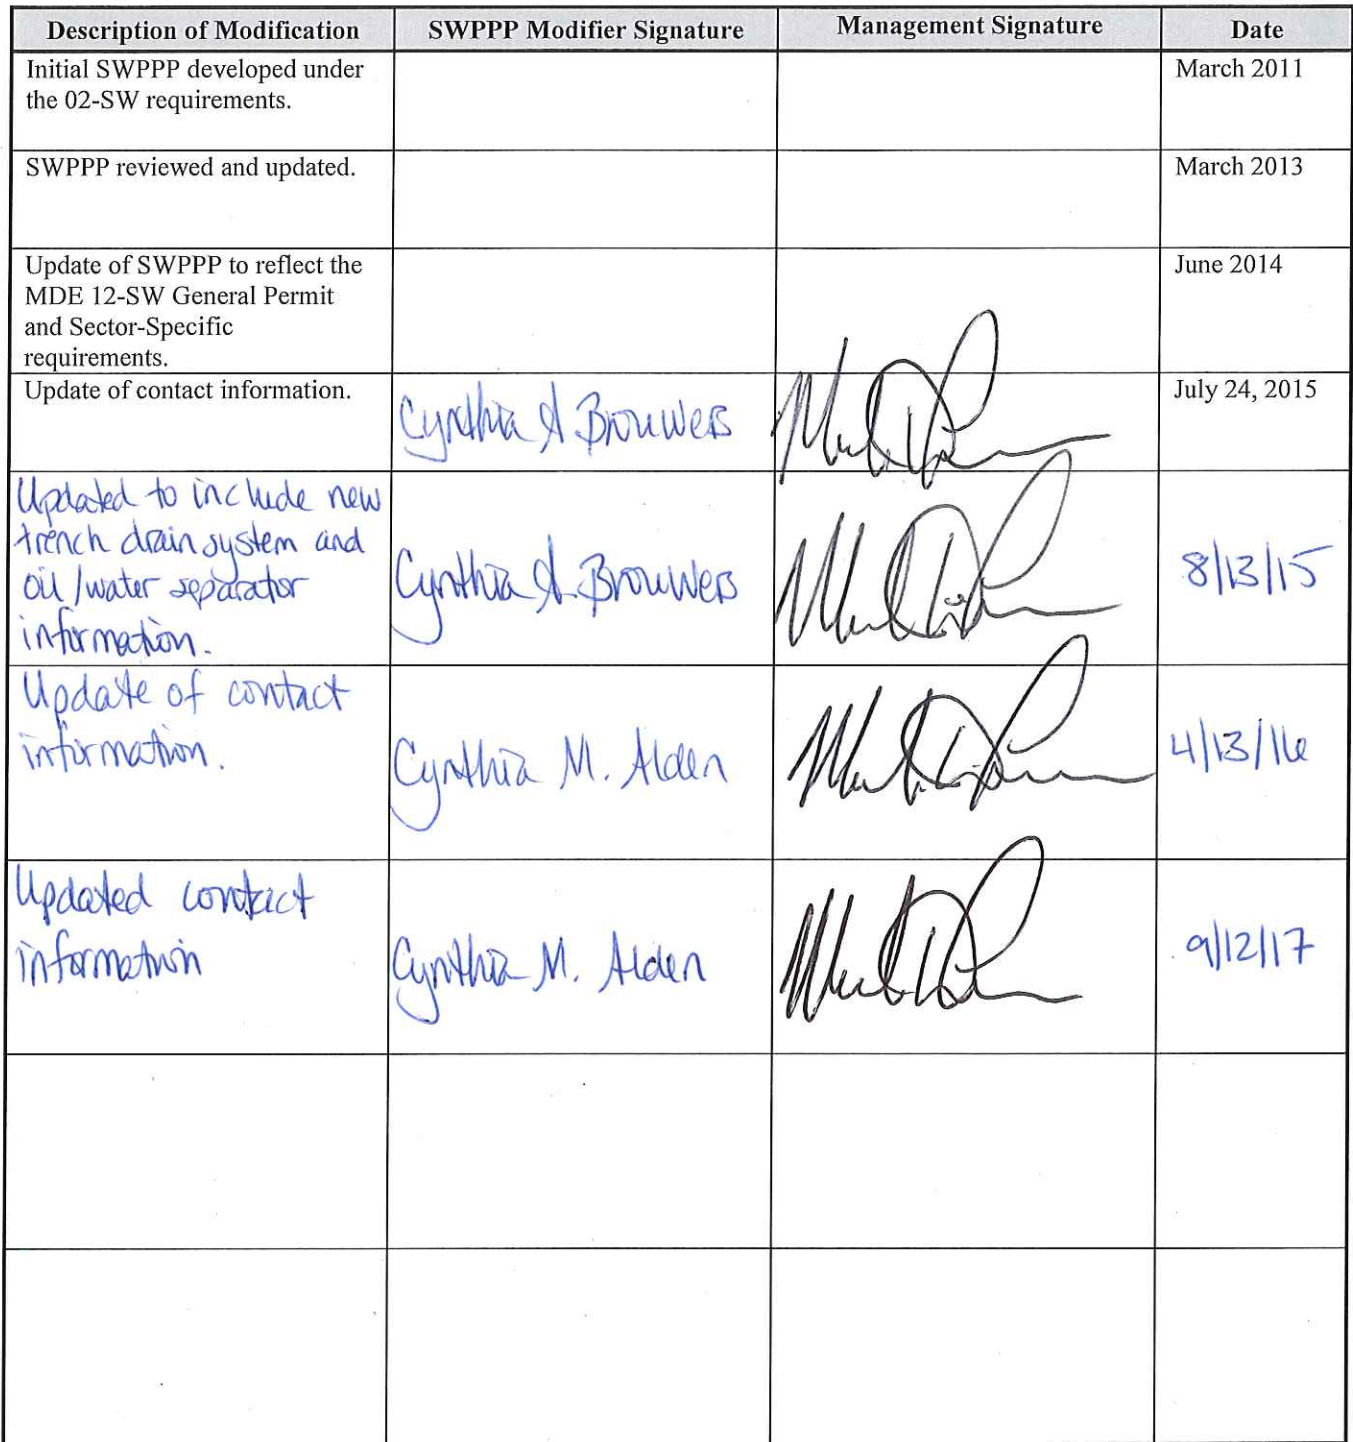 Description of Modification SWPPP Modifier Signature Management Signature Date
Initial SWPPP developed under
the 02-SW requirements.
March 2011
SWPPP reviewed and updated.
March 2013
Update of SWPPP to reflect the
MDE 12-SW General Permit
and Sector-Specific
requirements.
June 2014
Update of contact information.
Cynthia A Brouwers
July 24, 2015
Updated to include new
trench drain system and
oil/water separator
information.
Cynthia A. Brouwers
8/13/15
Update of contact
information.
Cynthia M. Alden
4/13/16
Updated contact
information
Cynthia M. Alden
9/12/17